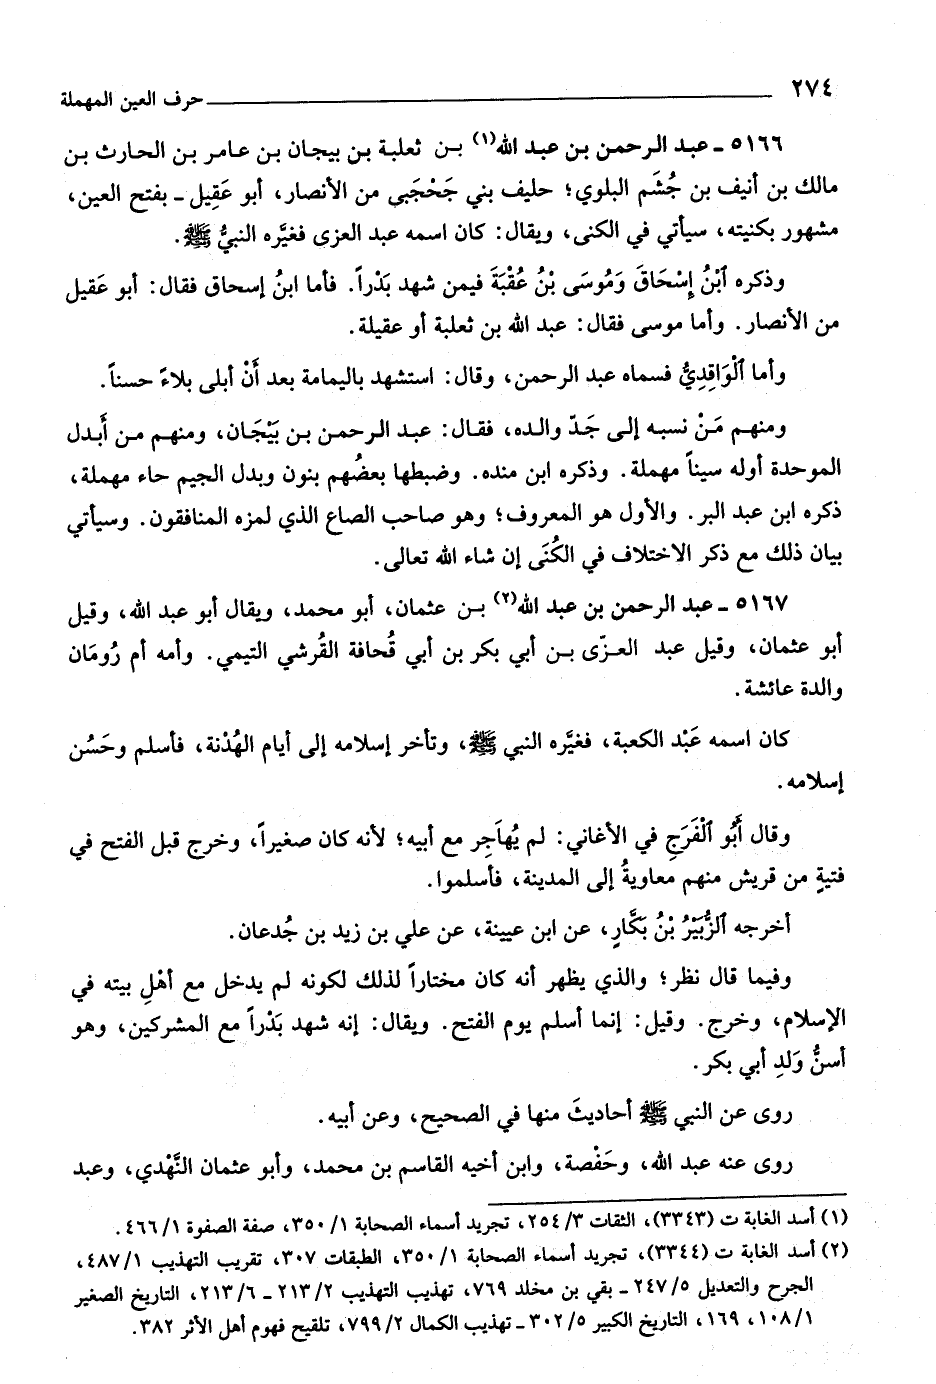 ٢٧٤ ــــــــــــــــــــ حرف العين المهملة
٥١٦٦ ـ عبد الرحمن بن عبد الله(١) بـن ثعلبة بن بيجان بن عامر بن الحارث بن
مالك بن أنيف بن جُشَم البلوي؛ حليف بني جَحْجَبى من الأنصار، أبو عَقِيل ـ بفتح العين،
مشهور بكنيته، سيأتي في الكنى، ويقال: كان اسمه عبد العزى فغيَّره النبيُّ ﷺ.
وذكره ٱبْنُ إِسْحَاقَ وَمُوسَى بْنُ عُقْبَةَ فيمن شهد بَدْراً. فأما ابنُ إسحاق فقال: أبو عَقيل
من الأنصار. وأما موسى فقال: عبد الله بن ثعلبة أو عقيلة.
وأما ٱلْوَاقِدِيُّ فسماه عبد الرحمن، وقال: استشهد باليمامة بعد أَنْ أبلى بلاءً حسناً.
ومنهـم مَـنْ نسبـه إلـى جَـدّ والـده، فقـال: عبـد الرحمـن بـن بَيْجَـان، ومنهـم مـن أَبـدل
الموحدة أوله سيناً مهملة. وذكره ابن منده. وضبطها بعضُهم بنون وبدل الجيم حاء مهملة،
ذكره ابن عبد البر. والأول هو المعروف؛ وهو صاحب الصاع الذي لمزه المنافقون. وسيأتي
بيان ذلك مع ذكر الاختلاف في الكُنَى إن شاء الله تعالى.
٥١٦٧ ـ عبد الرحمن بن عبد الله(٢) بـن عثمان، أبو محمد، ويقال أبو عبد الله، وقيل
أبو عثمان، وقيل عبد العـزّى بـن أبي بكر بن أبي قُحافة القُرشي التيمي. وأمه أم رُومَان
والدة عائشة.
كان اسمه عَبْد الكعبة، فغيَّره النبي ﷺ، وتأخر إسلامه إلى أيام الهُدْنة، فأسلم وحَسُن
إسلامه.
وقال أَبُو ٱلْفَرَجِ في الأغاني: لم يُهاَجِر مع أبيه؛ لأنه كان صغيراً، وخرج قبل الفتح في
فتيةٍ من قريش منهم معاويةُ إلى المدينة، فأسلموا.
أخرجه ٱلزُّبَيْرُ بْنُ بَكَّارٍ، عن ابن عيينة، عن علي بن زيد بن جُدعان.
وفيما قال نظر؛ والذي يظهر أنه كان مختاراً لذلك لكونه لم يدخل مع أهْلِ بيته في
الإسلام، وخرج. وقيل: إنما أسلم يوم الفتح. ويقال: إنه شهد بَدْراً مع المشركين، وهو
أسنُّ وَلَدِ أبي بكر.
روى عن النبي ﷺ أحاديثَ منها في الصحيح، وعن أبيه.
روى عنه عبد الله، وحَفْصة، وابن أخيه القاسم بن محمد، وأبو عثمان النَّهْدي، وعبد
(١) أسد الغابة ت (٣٣٤٣)، الثقات ٢٥٤/٣، تجريد أسماء الصحابة ٣٥٠/١، صفة الصفوة ٤٦٦/١.
(٢) أسد الغابة ت (٣٣٤٤)، تجريد أسماء الصحابة ٣٥٠/١، الطبقات ٣٠٧، تقريب التهذيب ٤٨٧/١،
الجرح والتعديل ٢٤٧/٥ ـ بقي بن مخلد ٧٦٩، تهذيب التهذيب ٢١٣/٢ ـ ٢١٣/٦، التاريخ الصغير
١٠٨/١، ١٦٩، التاريخ الكبير ٣٠٢/٥ ـ تهذيب الكمال ٧٩٩/٢، تلقيح فهوم أهل الأثر ٣٨٢.